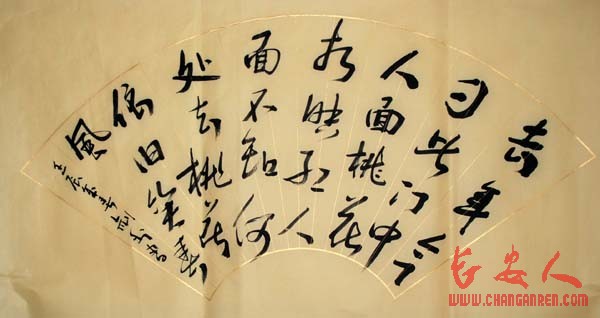 去年今
日此门中
人面桃花
相映红人
面不知何
处去桃花
依旧笑春
風
壬辰
长安人
WWW.CHANGANREN.COM